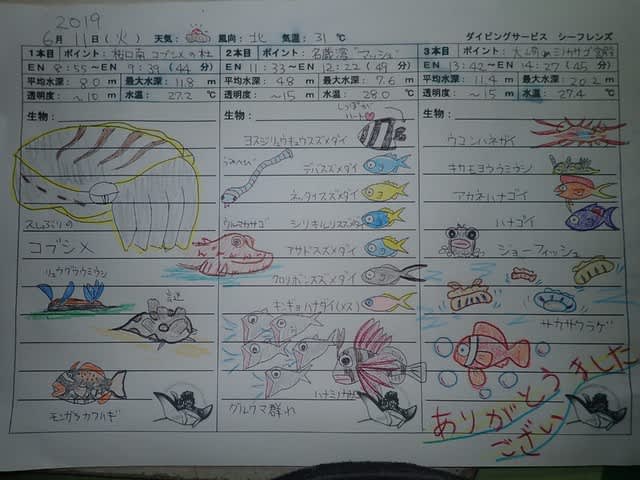 2019
6月 11日(火) 天気: 風向: 北 気温: 31 ℃ ダイビングサービス シーフレンズ
1本目 ポイント: 桜口南 コブシメの杜
EN 8:55~EN 9:39 (44 分)
平均水深: 8.0 m 最大水深: 11.8 m
透明度: ~10 m 水温: 27.2 ℃
生物:
久しぶりの
コブシメ
リュウグウウミウシ
謎
モンガラカワハギ
2本目 ポイント: 名蔵湾 "マッシュ"
EN 11:33~EN 12:22 (49 分)
平均水深: 4.8 m 最大水深: 7.6 m
透明度: ~15 m 水温: 28.0 ℃
生物:
しっぽが
ハート
ヨスジリュウキュウスズメダイ
デバスズメダイ
ネッタイスズメダイ
ウルマカサゴ
シリキルリスズメダイ
アサドスズメダイ
クロリボンスズメダイ
キンギョハナダイ(メス)
ハナミノカサゴ
グルクマ群れ
3本目 ポイント: 大崎
EN 13:42~EN 14:27 (45 分)
平均水深: 11.4 m 最大水深: 20.2 m
透明度: ~15 m 水温: 27.4 ℃
生物:
ウコンハネガイ
キカモヨウウミウシ
アカネハナゴイ
ハナゴイ
ジョーフィッシュ
サカサクラゲ
ありがとう
ございました